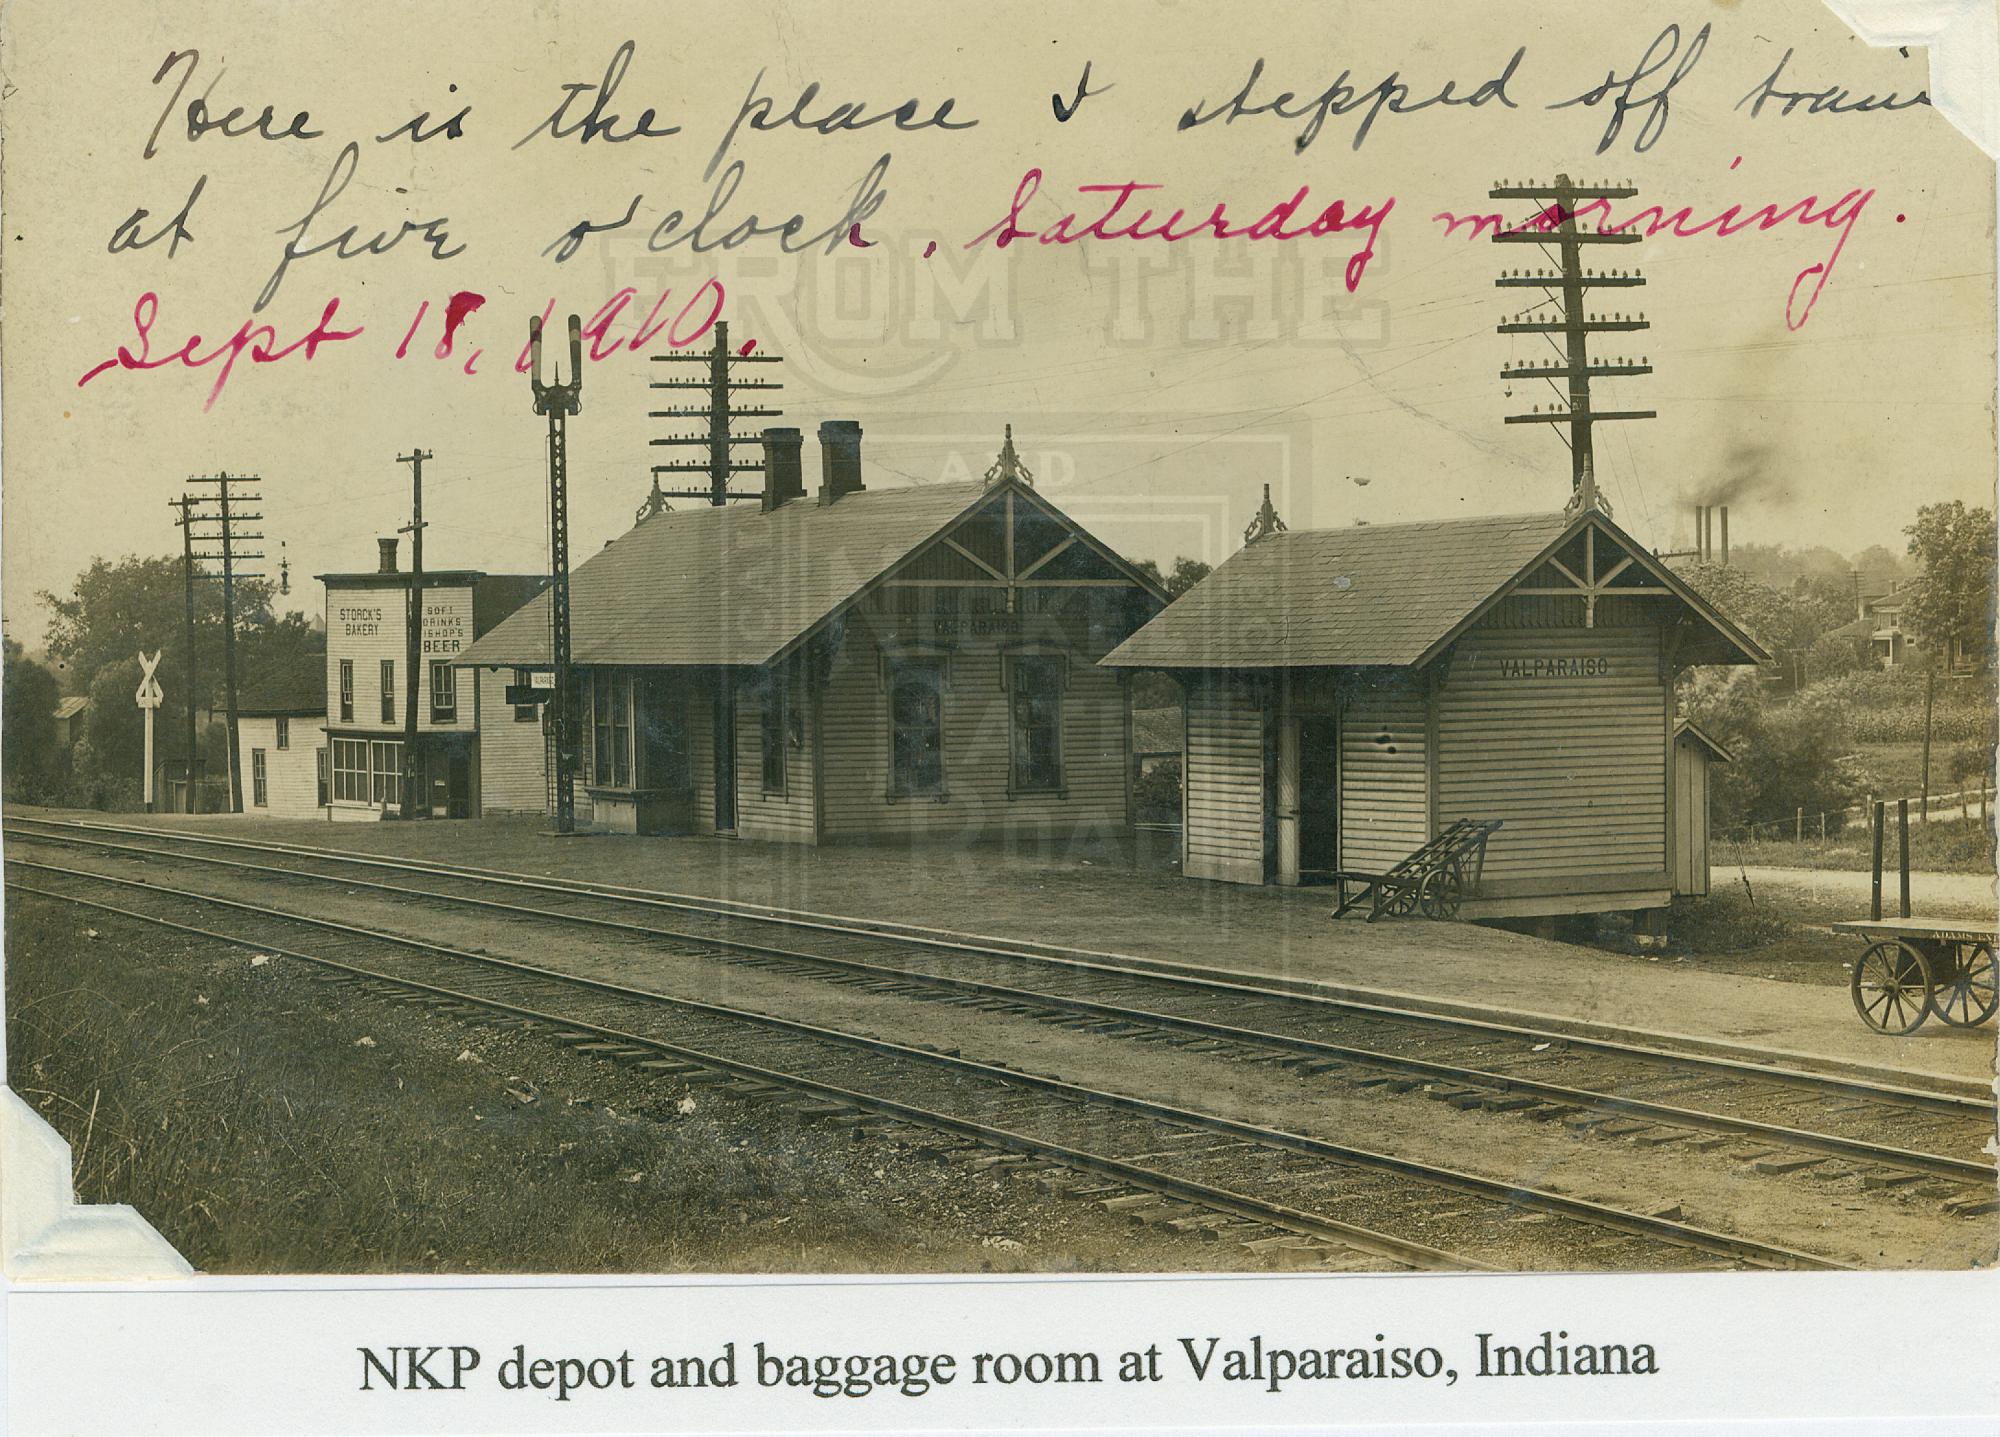 Here is the place I stepped off train
at five o'clock, Saturday morning.
Sept 18, 1910.
FROM THE
AND
STORCK'S
BAKERY
SOFT
DRINKS
BISHOP'S
BEER
VALPARAISO
VALPARAISO
VALPARAISO
ADAMS EX
NKP depot and baggage room at Valparaiso, Indiana